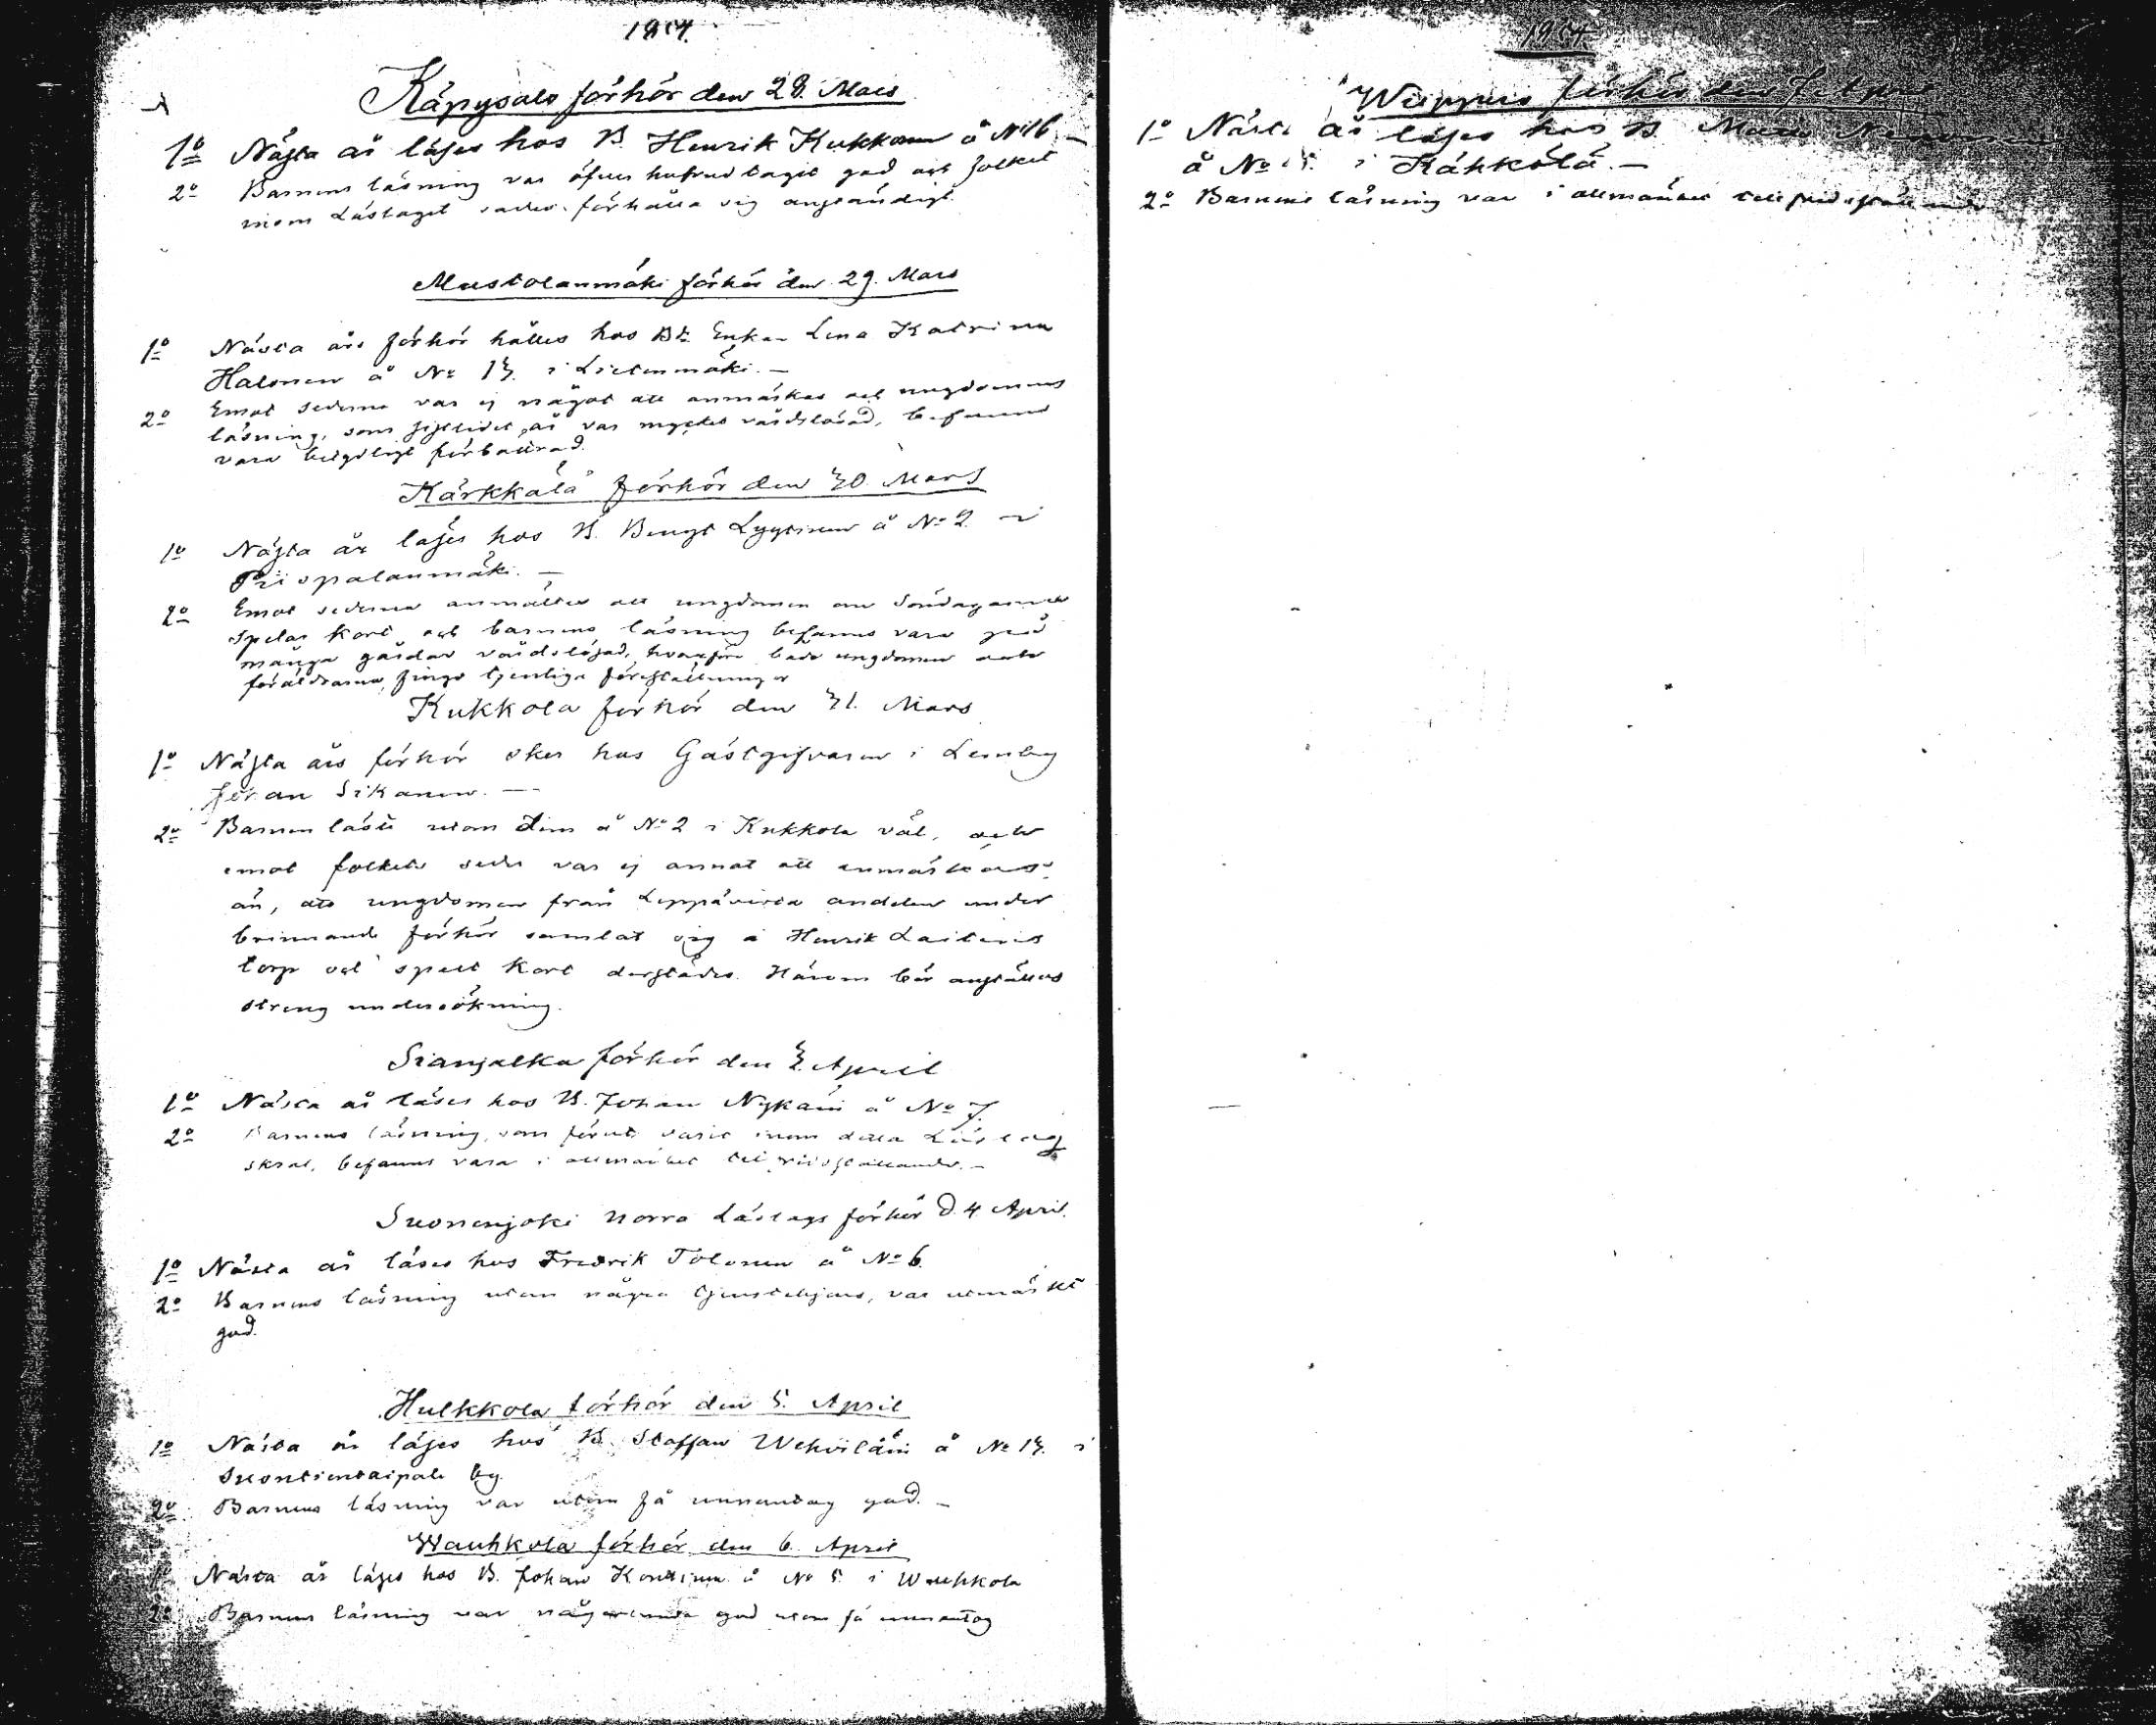 Käpysalo förhör den 28. Mars
1o Nästa år läses hos B. Henrik Kukkonen å No 16 -
2o Barnens läsning var öfver hufvud tagit god och folket
inom Läslaget sades förhålla sig anständigt.
Mustolanmäki förhör den 29. Mars
1o Nästa års förhör hålles hos Bde Enkan Lena Katrina
Halonen å No 13. i Lietenmäki. -
2o Emot sederne var ej något att anmärkas och ungdomens
läsning, som sistlidet år var mycket vårdslösad, befanns
vara betydligt förbättrad.
Kärkkälä förhör den 30 Mars
1o Nästa år läses hos B. Bengt Lyytinen å No 2. i
Piispalanmäki. -
2o Emot sederna anmältes att ungdomen om Söndagarne
spelar kort och barnens läsning befanns vara på
många gårdar vårdslösad, hvarföre både ungdomen och
föräldrarne fingo tjenliga föreställningar
Kukkola förhör den 31. Mars
1o Nästa års förhör sker hos Gästgifvaren i
Johan Sikanen. -
2o Barnen läste utom dem å No 2 i Kukkola väl, och
emot folkets seder var ej annat att anmärkas
än, att ungdomen från Leppävirta andelen under
brinnande förhör samlat sig i Henrik Laitinens
torp och spelt kort derstädes. Härom bör anställas
streng undersökning.
Sianjalka förhör den 3. April
1o Nästa år läses hos B. Johan Nykäin å No 7.
2o Barnens läsning, som förut varit inom detta Läslag
skral, befanns vara i allmänhet tillfridsställande. -
Suonenjoki Norra Läslags förhör d. 4 April.
1o Nästa år läses hos Fredrik Tolonen å No 6.
2o Barnens läsning utom några tjenstehjons, var utmärkt
god.
Hulkkola förhör den 5. April
1o Nästa år läses hos B. Staffan Wehviläin å No 13. i
Suontientaipale by.
2o Barnens läsning var utom få unnantag god. -
Wauhkola förhör den 6. April
1o Nästa år läses hos B. Johan å No 5 i Wauhkola
2o Barnens läsning var någorlunda god utom få unnantag
förhör den 7 April
1o Nästa år läses hos B.
å No 5. i Kähkölä. -
2o Barnens läsning var i allmänhet tillfridsställande